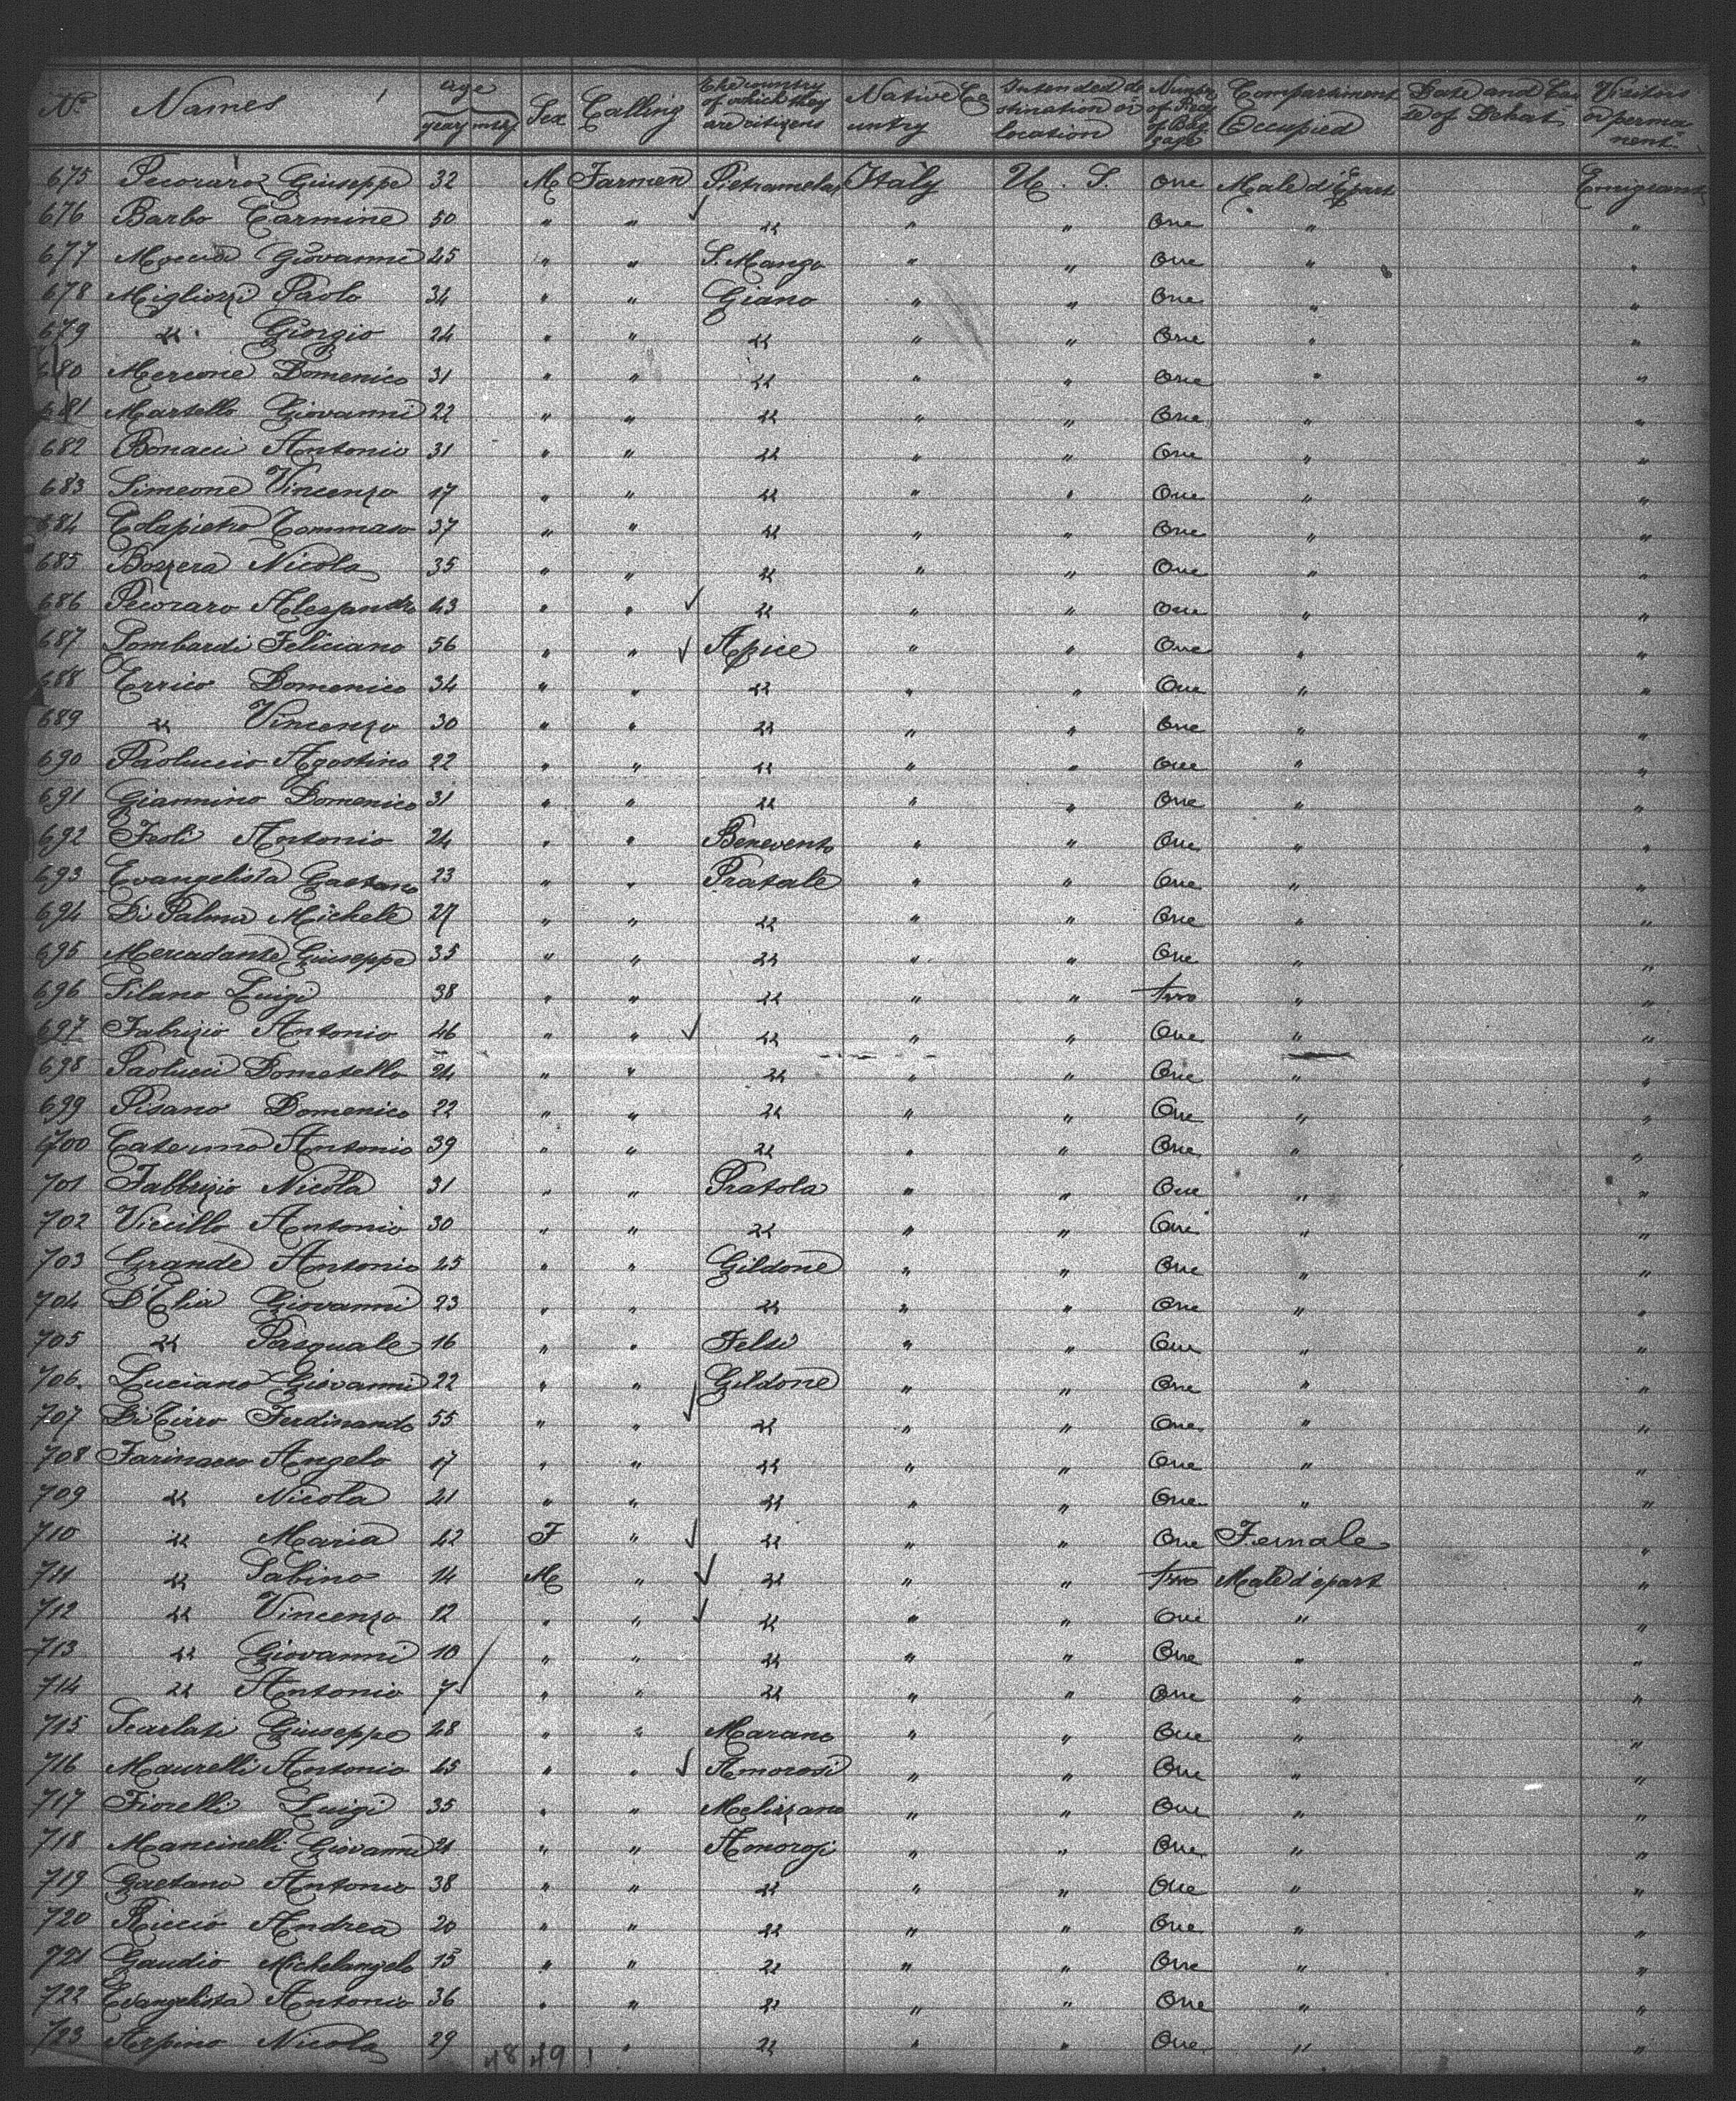 No Names age years mths Sex Calling The country of which they are citizens Native Country Intended destination or location Number of Pces of Baggage Compartiment Occupied Date and Cause of Dehat Visitors or permanent
675 Pecoraro Giuseppe 32 M Farmen Pietramelar Italy U. S. One Male d'Epart Emigrant
676 Barbo Carmine 50 " " " " " One " "
677 Moccia Giovanni 25 " " S. Mango " " One " "
678 Migliozzi Paolo 34 " " Giano " " One " "
679 " Giorgio 24 " " " " " One " "
680 Mercone Domenico 31 " " " " " One " "
681 Martello Giovanni 22 " " " " " One " "
682 Bonacci Antonio 31 " " " " " One " "
683 Simeone Vincenzo 17 " " " " " One " "
684 Colapietro Tommaso 37 " " " " " One " "
685 Bozzera Nicola 35 " " " " " One " "
686 Pecoraro Alessandro 43 " " " " " One " "
687 Lombardi Feliciano 56 " " Apice " " One " "
688 Errico Domenico 34 " " " " " One " "
689 " Vincenzo 30 " " " " " One " "
690 Paoluccio Agostino 22 " " " " " One " "
691 Giannino Domenico 31 " " " " " One " "
692 Feoli Antonio 24 " " Benevento " " One " "
693 Evangelista Gaetano 23 " " Pratale " " One " "
694 Di Palma Michele 27 " " " " " One " "
695 Mercadante Giuseppe 35 " " " " " One " "
696 Silano Luigi 38 " " " " " two " "
697 Fabrizio Antonio 46 " " " " " One " "
698 Paolucci Dometello 24 " " " " " One " "
699 Pisano Domenico 22 " " " " " One " "
700 Caterino Antonio 39 " " " " " One " "
701 Fabbrizio Nicola 31 " " Pratola " " One " "
702 Viccillo Antonio 30 " " " " " One " "
703 Grande Antonio 25 " " Gildone " " One " "
704 D'Elia Giovanni 23 " " " " " One " "
705 " Pasquale 16 " " Felsi " " One " "
706 Luciano Giovanni 22 " " Gildone " " One " "
707 Di Cirro Ferdinando 55 " " " " " One " "
708 Farinacco Angelo 17 " " " " " One " "
709 " Nicola 21 " " " " " One " "
710 " Maria 42 F " " " " One Female "
711 " Sabino 14 M " " " " two Male d'epart "
712 " Vincenzo 12 " " " " " One " "
713 " Giovanni 10 " " " " " One " "
714 " Antonio 7 " " " " " One " "
715 Scarlati Giuseppe 28 " " Marano " " One " "
716 Maurelli Antonio 45 " " Amorosi " " One " "
717 Fiorelli Luigi 35 " " Melizzano " " One " "
718 Mancinelli Giovanni 21 " " Amorosi " " One " "
719 Gaetano Antonio 38 " " " " " One " "
720 Riccio Andrea 20 " " " " " One " "
721 Gaudio Michelangelo 15 " " " " " One " "
722 Evangelista Antonio 36 " " " " " One " "
723 Arpino Nicola 29 " " " " " One " "
48 49 1